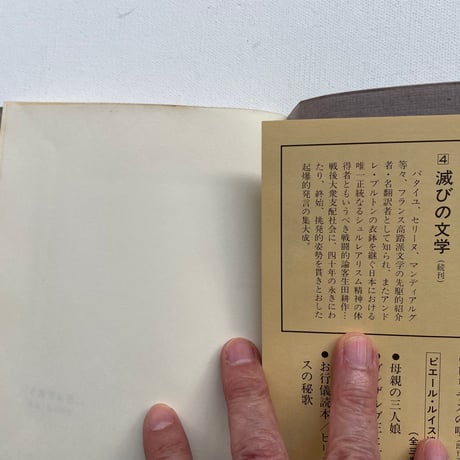 ④滅びの文学(続刊)
バタイユ、セリーヌ、マンディアルグ
等々、フランス高踏派文学の先駆的紹介
者・名翻訳者として知られ、またアンド
レ・ブルトンの衣鉢を継ぐ日本における
唯一正統なるシュルレアリスム精神の体
得者ともいうべき戦闘的論客生田耕作…
戦後大衆支配社会に、四十年の永きにわ
たり、終始、挑発的姿勢を貫きとおした
起爆的発言の集大成。
ピエール・ルイス
●母親の三人娘
●お行儀読本/ビ
スの秘歌